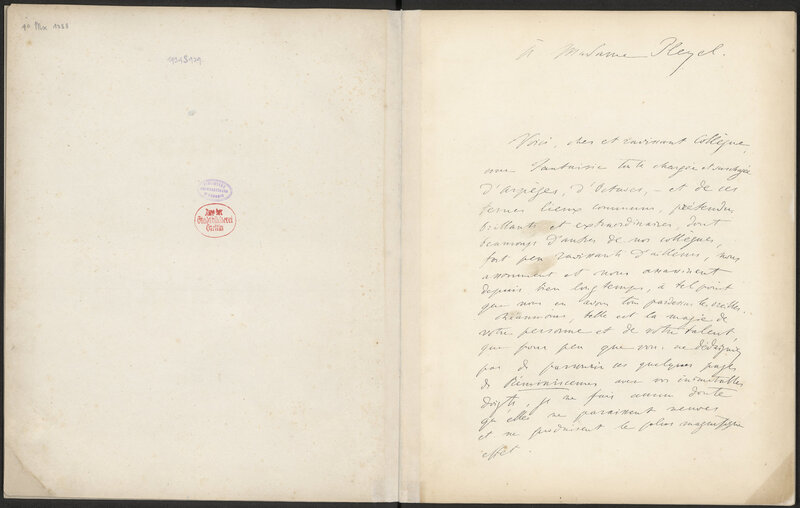 À Madame Pleyel.
Voici, cher et ravissant Collègue,
une Fantaisie toute chargée et surchargée
d'arpèges, d'octaves, – et de ces
ternes lieux communs, prétendus
brillants et extraordinaires dont
beaucoup d'autres de nos collègues,
fort peu ravissants d'ailleurs, nous
assomment et nous
depuis bien longtemps, à tel point
que nous en avons tous pardessus les oreilles.
Néanmoins, telle est la magie de
votre personne et de votre talent
que pour peu que vous ne dédaigniez
pas de parcourir ces quelques pages
de Réminiscences avec vos inimitables
doigts, je ne fais aucun doute
qu'elles ne paraissent neuves
et ne produisent le plus magnifique
effet.